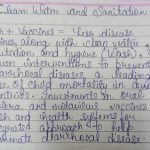 Clean Water and Sanitation
+ Vaccines = Less disease
along with clean water
and hygiene (Wash).
interventions to prevent
diarrheal diseases a leading
of child mortality in
Investments in oral
cholera and rotavirus vaccines
Wash and health systems for
approach to help
diarrheal disease.